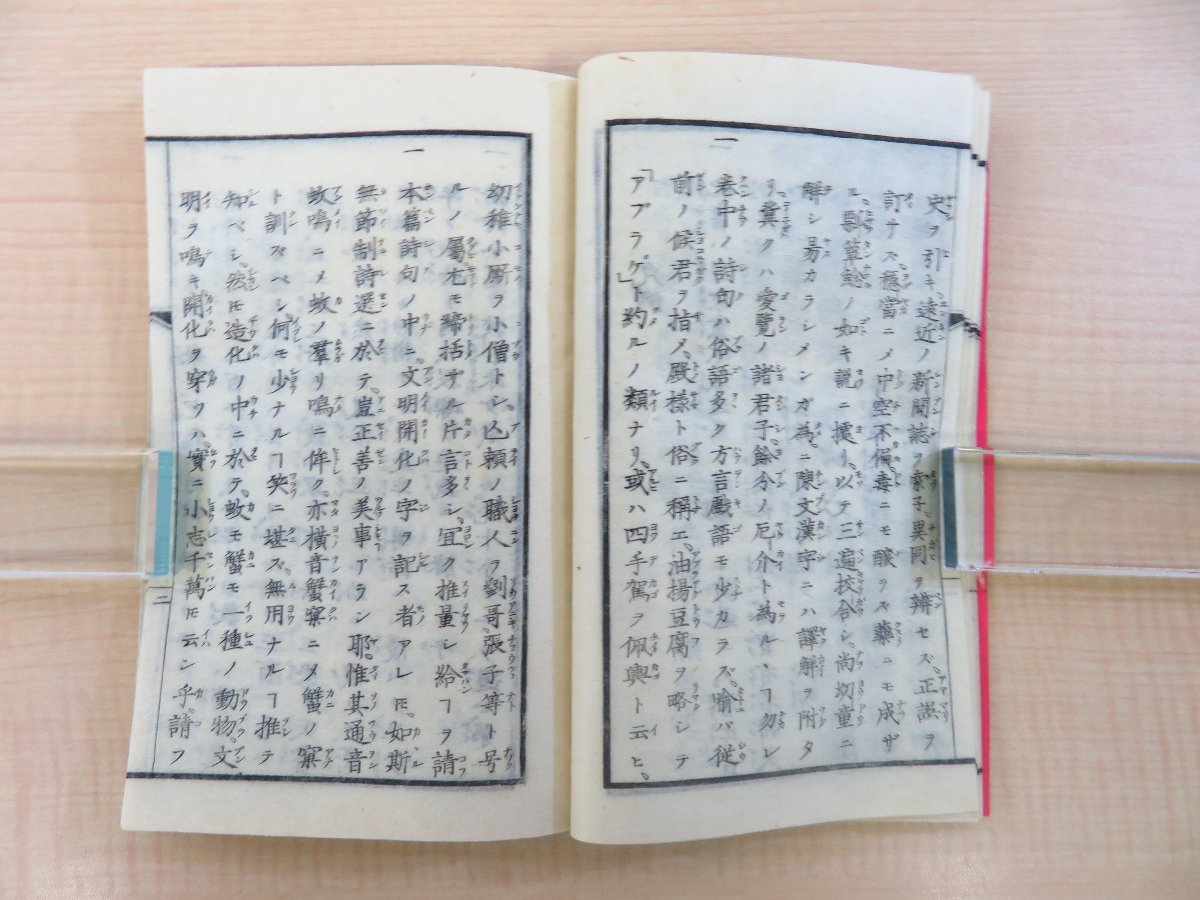 史ヲ引キ、遠近ノ新聞誌ヲ索子、異同ヲ辨セズ、正誤ヲ
訂サズ、穏當ニメ中空不偏、毒ニモ醸ラズ藥ニモ成ザ
ル、瓢箪鯰ノ如キ説ニ據リ、以テ三遍挍合シ、尚幼童ニ
解シ易カラシメンガ為ニ陳文漢字ニハ譯解ヲ附タ
リ、冀クハ愛覽ノ諸君子餘分ノ厄介ト為ルヿ勿レ
一
巻中ノ詩句ハ俗語多ク方言戲語モ少カラズ、喩バ從
前ノ候君ヲ指メ、殿様ト俗ニ稱エ、油揚豆腐ヲ略シテ
「アブラゲ」ト約ルノ類ナリ、或ハ四手駕ヲ佩輿ト云ヒ、
幼稚小厮ヲ小僧トシ、亾頼ノ職人ヲ劉哥、張子等ト号
ルノ屬尤モ締括ザル片言多シ、宜ク推量シ給ヿヲ請
一
本篇詩句ノ中ニ、文明開化ノ字ヲ記ス者アレ𪜈、如斯
無節制詩選ニ於テ、豈正善ノ美事アラン耶、惟其通音
蚊鳴ニメ蚊ノ羣リ鳴ニ侔ク、亦横音蟹窮ニメ蟹ノ窮
ト訓ズベシ、何モ少ナルヿ笑ニ堪ズ、無用ナルヿ推テ
知ベシ、然𪜈造化ノ中ニ於テ、蚊モ蟹モ一種ノ動物、文
明ヲ鳴キ開化ヲ穿ツハ、實ニ小志千萬𪜈云ン乎、請フ
二